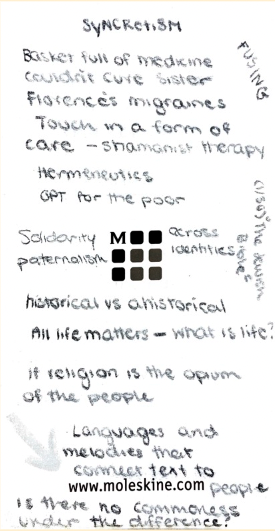 SyNCRetiSM
FUSING
Basket full of medicine
couldn't cure Sister
Florence's migraines
Touch in a form of
care - shamanist therapy
Hermeneutics
GPT for the poor
Solidarity
paternalism
M
across
identities
The Jewish
Bible
historical vs ahistorical
All life matters - what is life?
if religion is the opium
of the people
Languages and
melodies that
connect text to
people
www.moleskine.com
is there no commoness
under the difference?